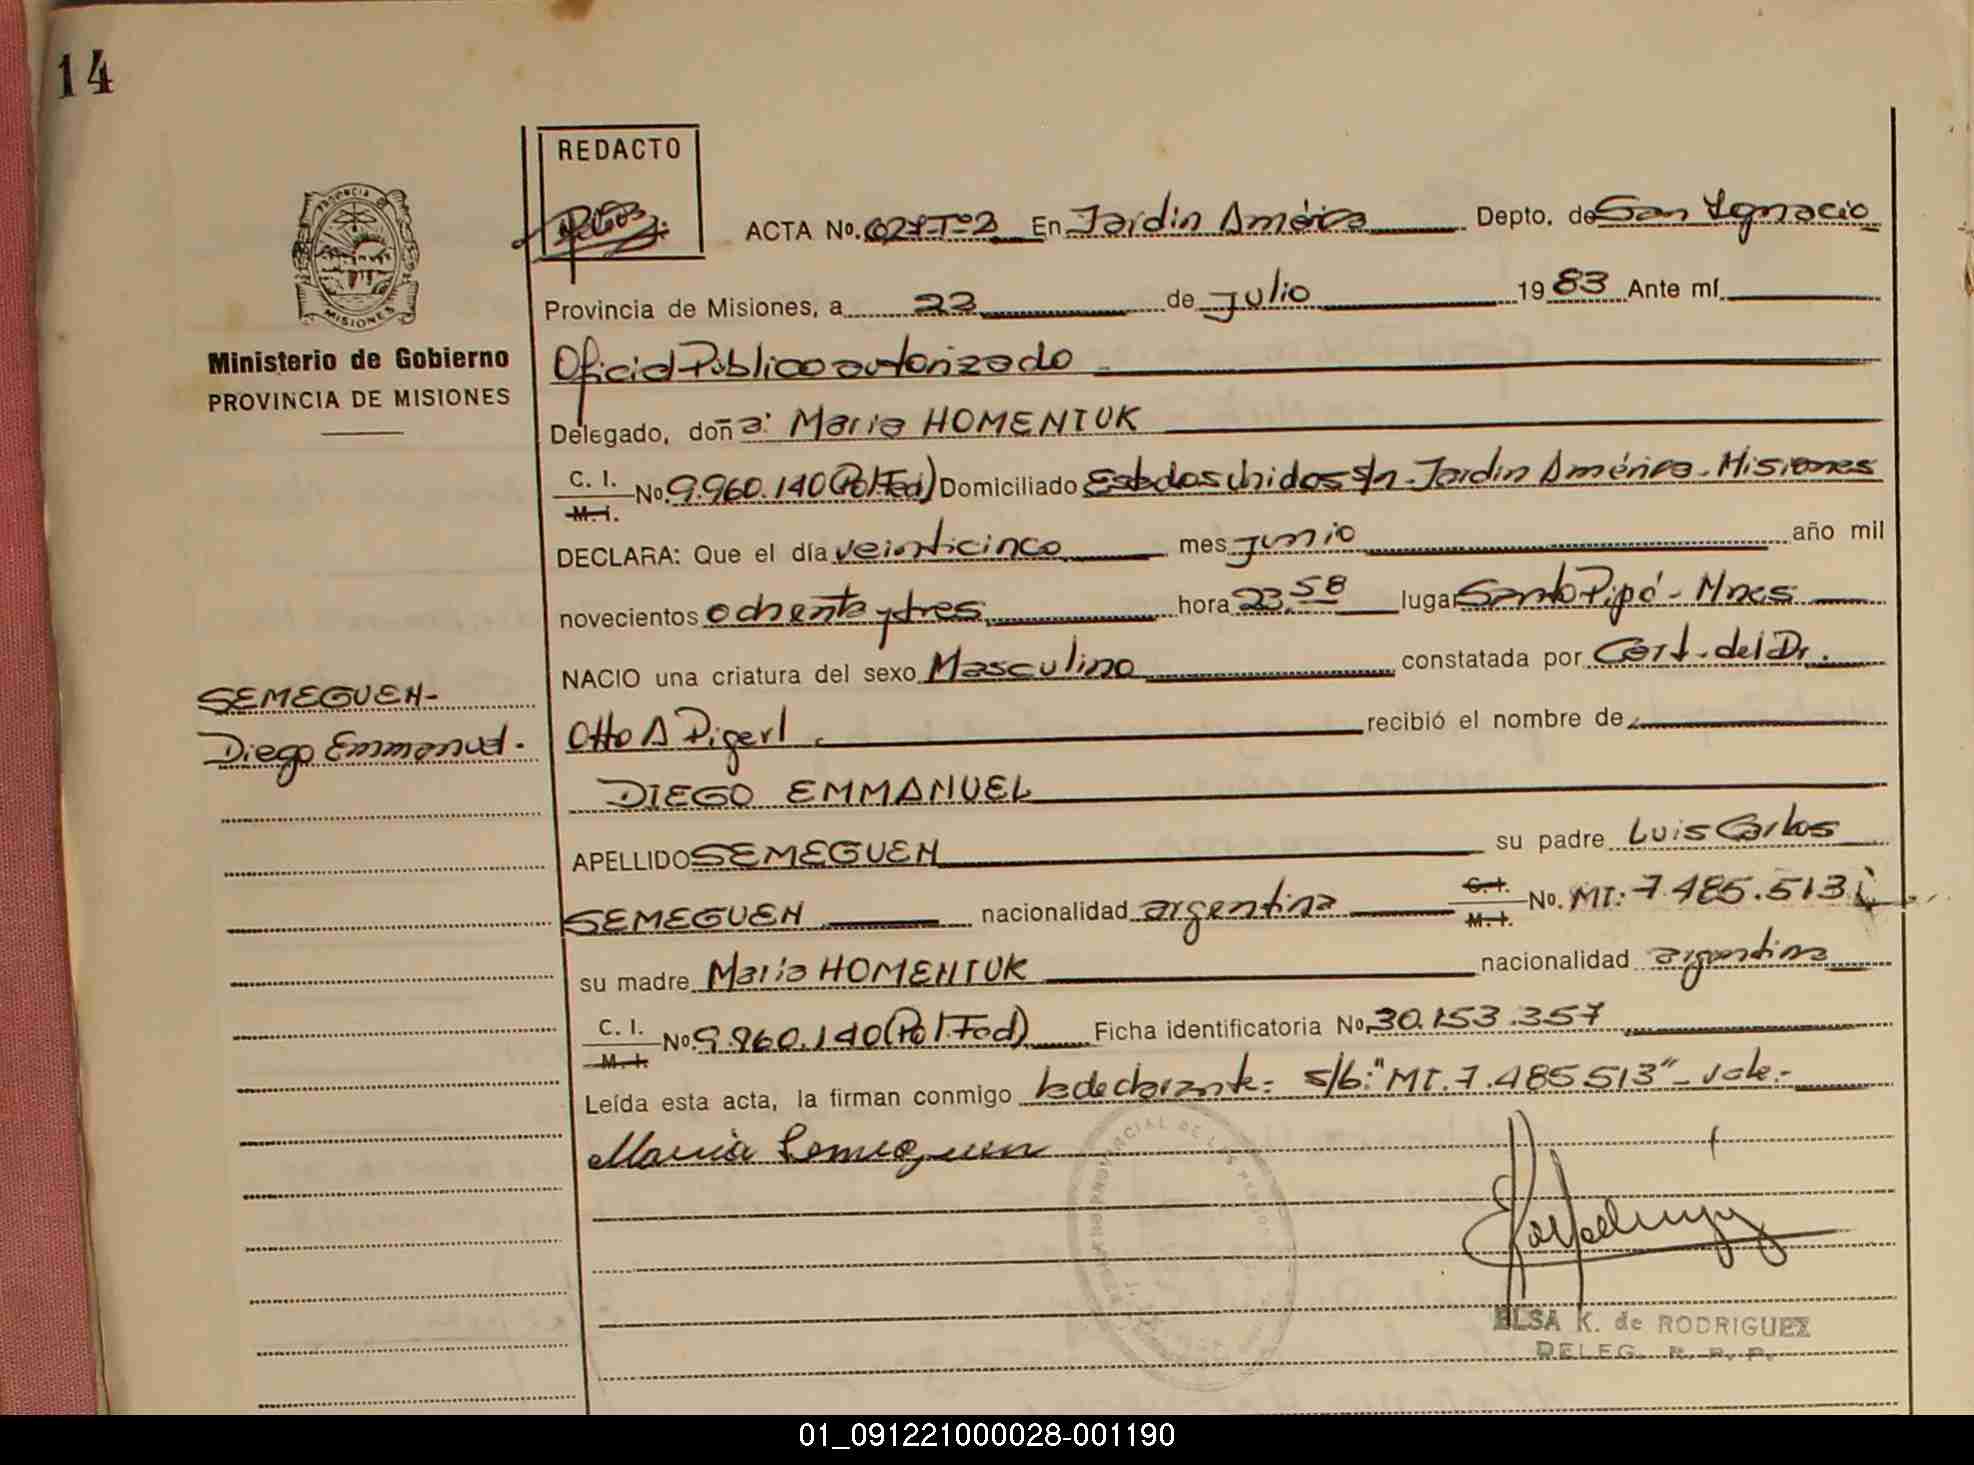 14
REDACTO
PROVINCIA DE
MISIONES
Ministerio de Gobierno
PROVINCIA DE MISIONES
ACTA No. 027-Tº2 En Jardin América Depto. de San Ignacio
Provincia de Misiones, a 22 de Julio 1983 Ante mí
Oficial Público autorizado
Delegado, doña: Maria HOMENIUK
C. I. M. I. No. 9.960.140 (Pol. Fed) Domiciliado Estados Unidos s/n. Jardin América - Misiones
DECLARA: Que el día veinticinco mes junio año mil
novecientos ochenta y tres hora 23.58 lugar Santo Pipó - Mnes
NACIO una criatura del sexo Masculino constatada por Cert. del Dr.
Otto A Pigerl recibió el nombre de
DIEGO EMMANUEL
SEMEGUEN-
Diego Emmanuel.
APELLIDO SEMEGUEN su padre Luis Carlos
SEMEGUEN nacionalidad argentina C. I. M. I. No. MI: 7.485.513
su madre Maria HOMENIUK nacionalidad argentina
C. I. M. I. No. 9.960.140 (Pol. Fed) Ficha identificatoria No. 30.153.357
Leída esta acta, la firman conmigo la declarante= s/b: "MI. 7.485513" - vale.-
Maria Semeguen
ELSA K. de RODRIGUEZ
DELEG. R. P. P.
01_091221000028-001190